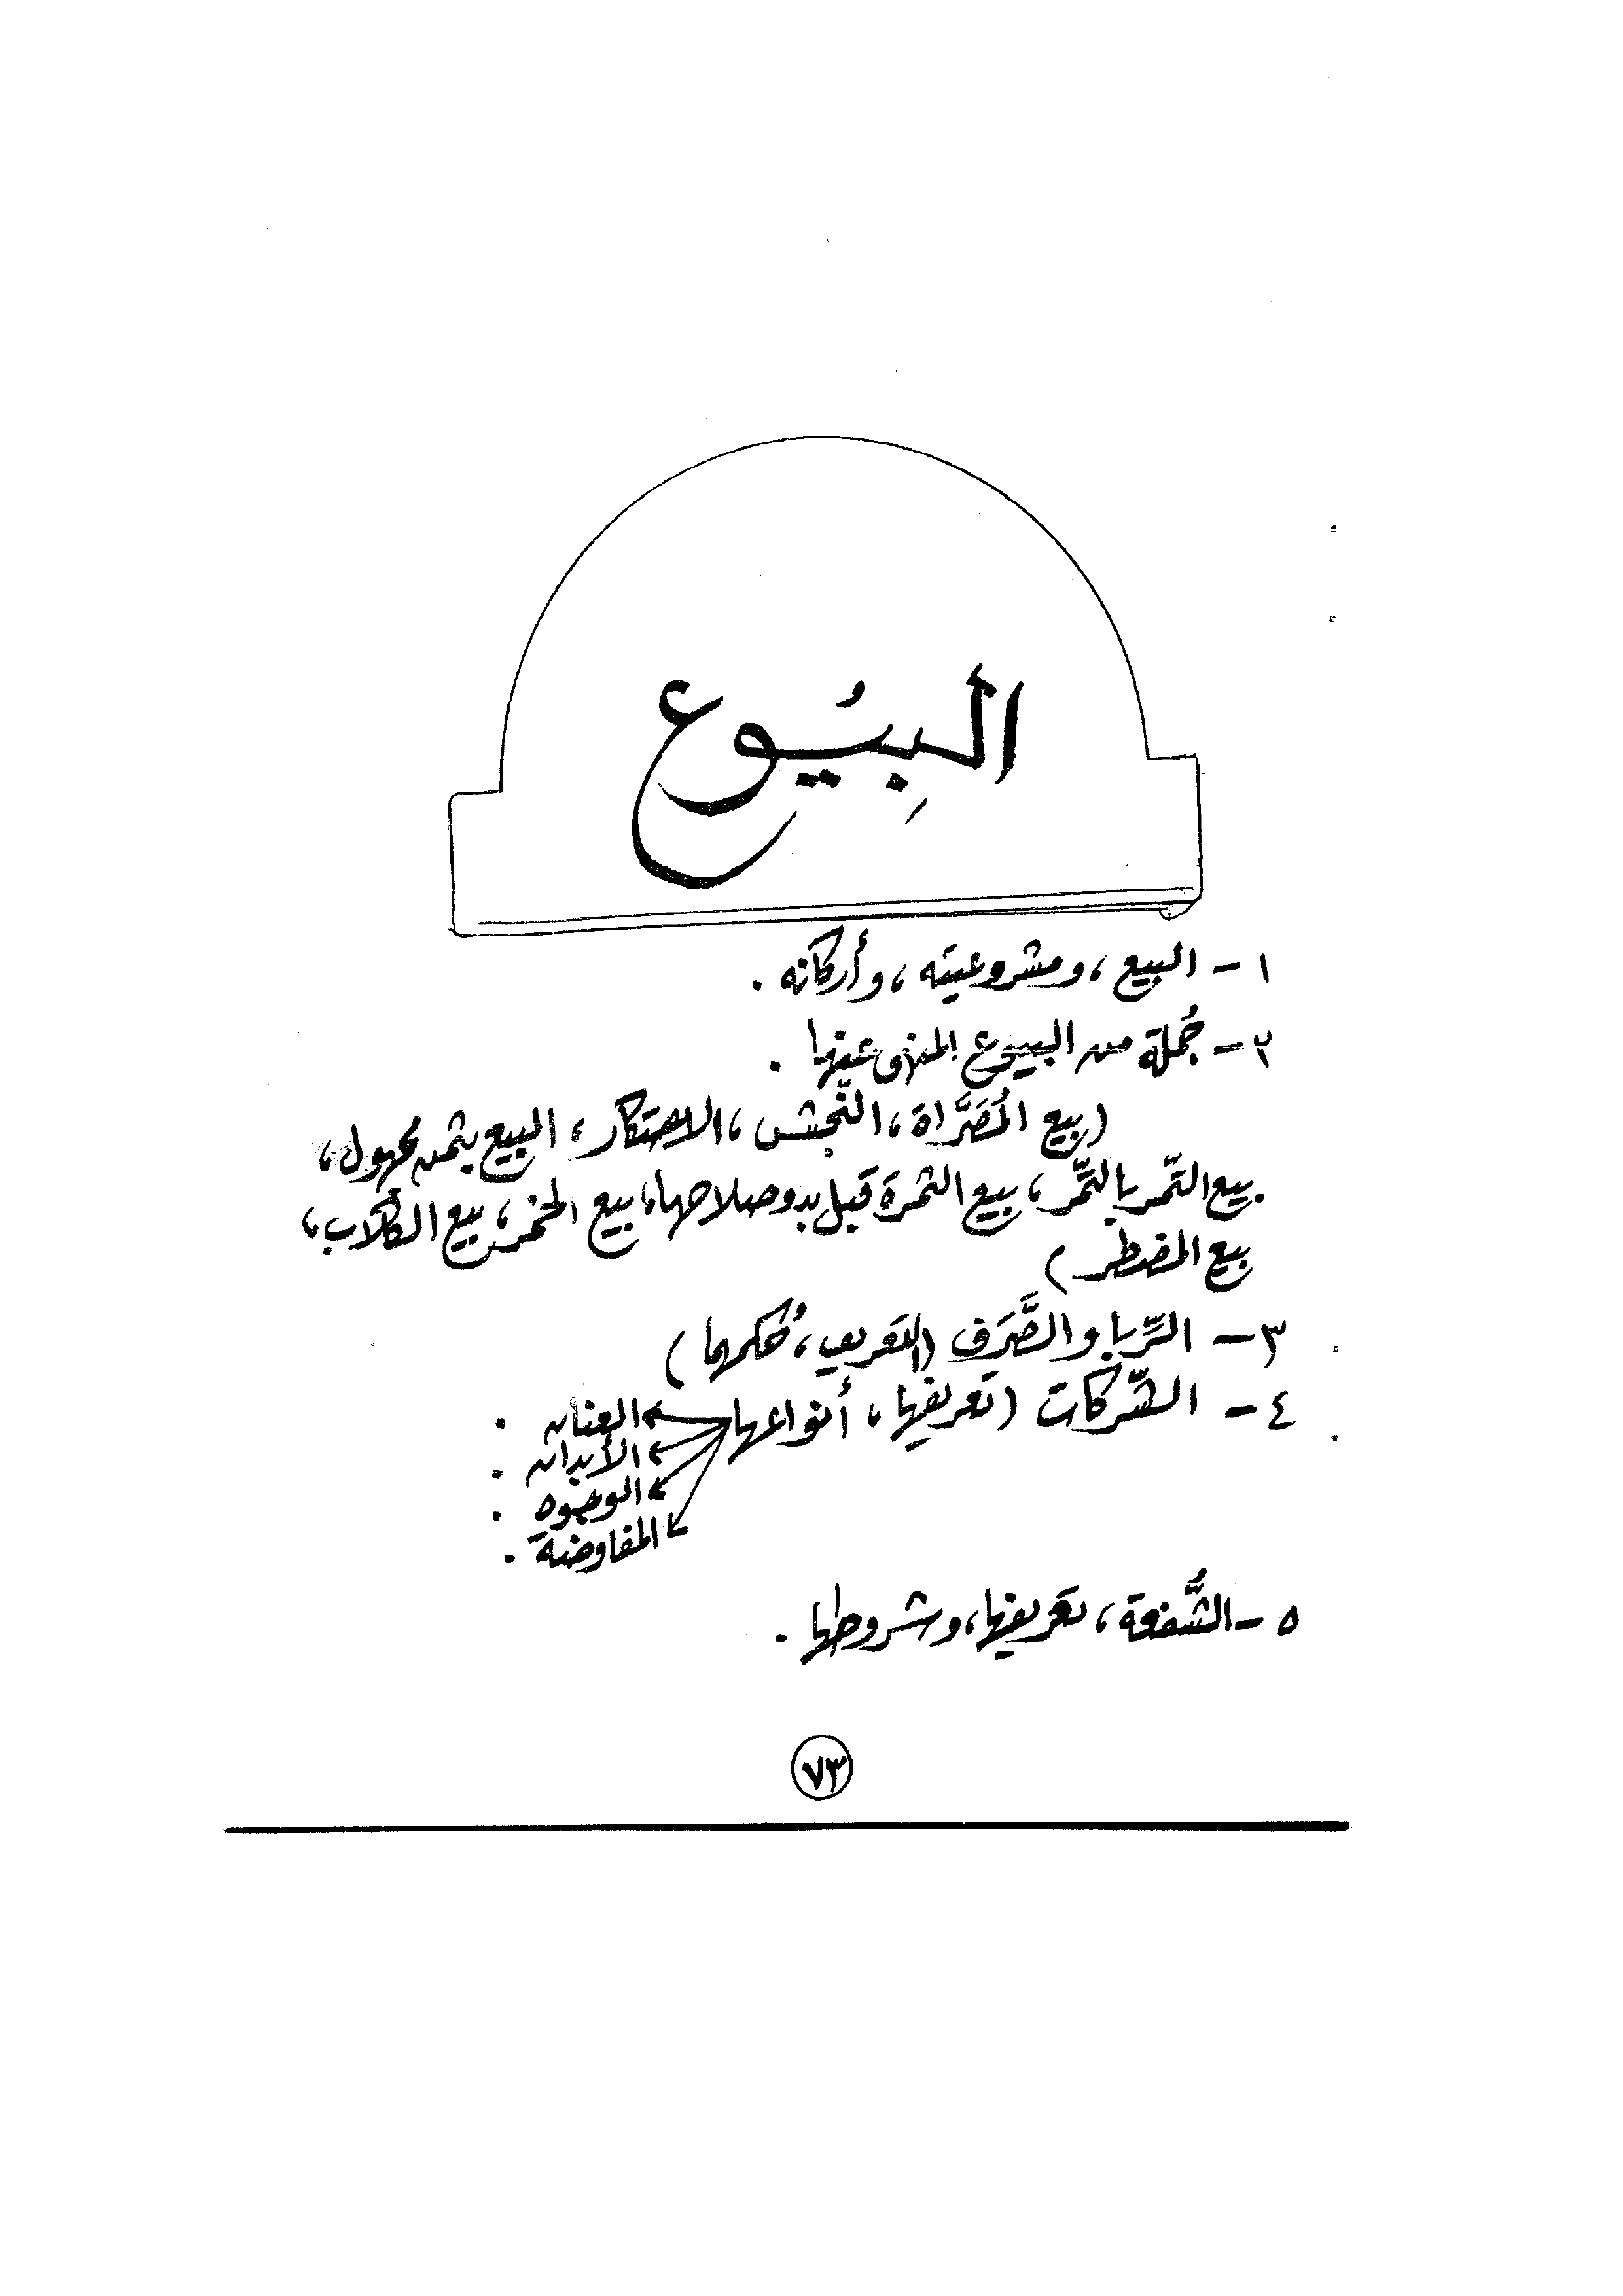 البِيُوع
١- البيع، ومشروعيته، وأركانه.
٢- جُملة من البيوع المنهي عنها.
(بيع المُصَرَّاة، النَّجش، الاحتكار، البيع بثمن مجهول،
بيع التَّمر بالتَّمر، بيع الثمرة قبل بدو صلاحها، بيع الخمر، بيع الكلاب،
بيع المضطر)
٣- الرِّبا والصَّرف (التعريف، حُكمهما)
٤- الشّركات (تعريفها، أنواعها العنان.
الأبدان.
الوجوه.
المفاوضة.
٥- الشُّفعة، تعريفها، وشروطها.
٧٣